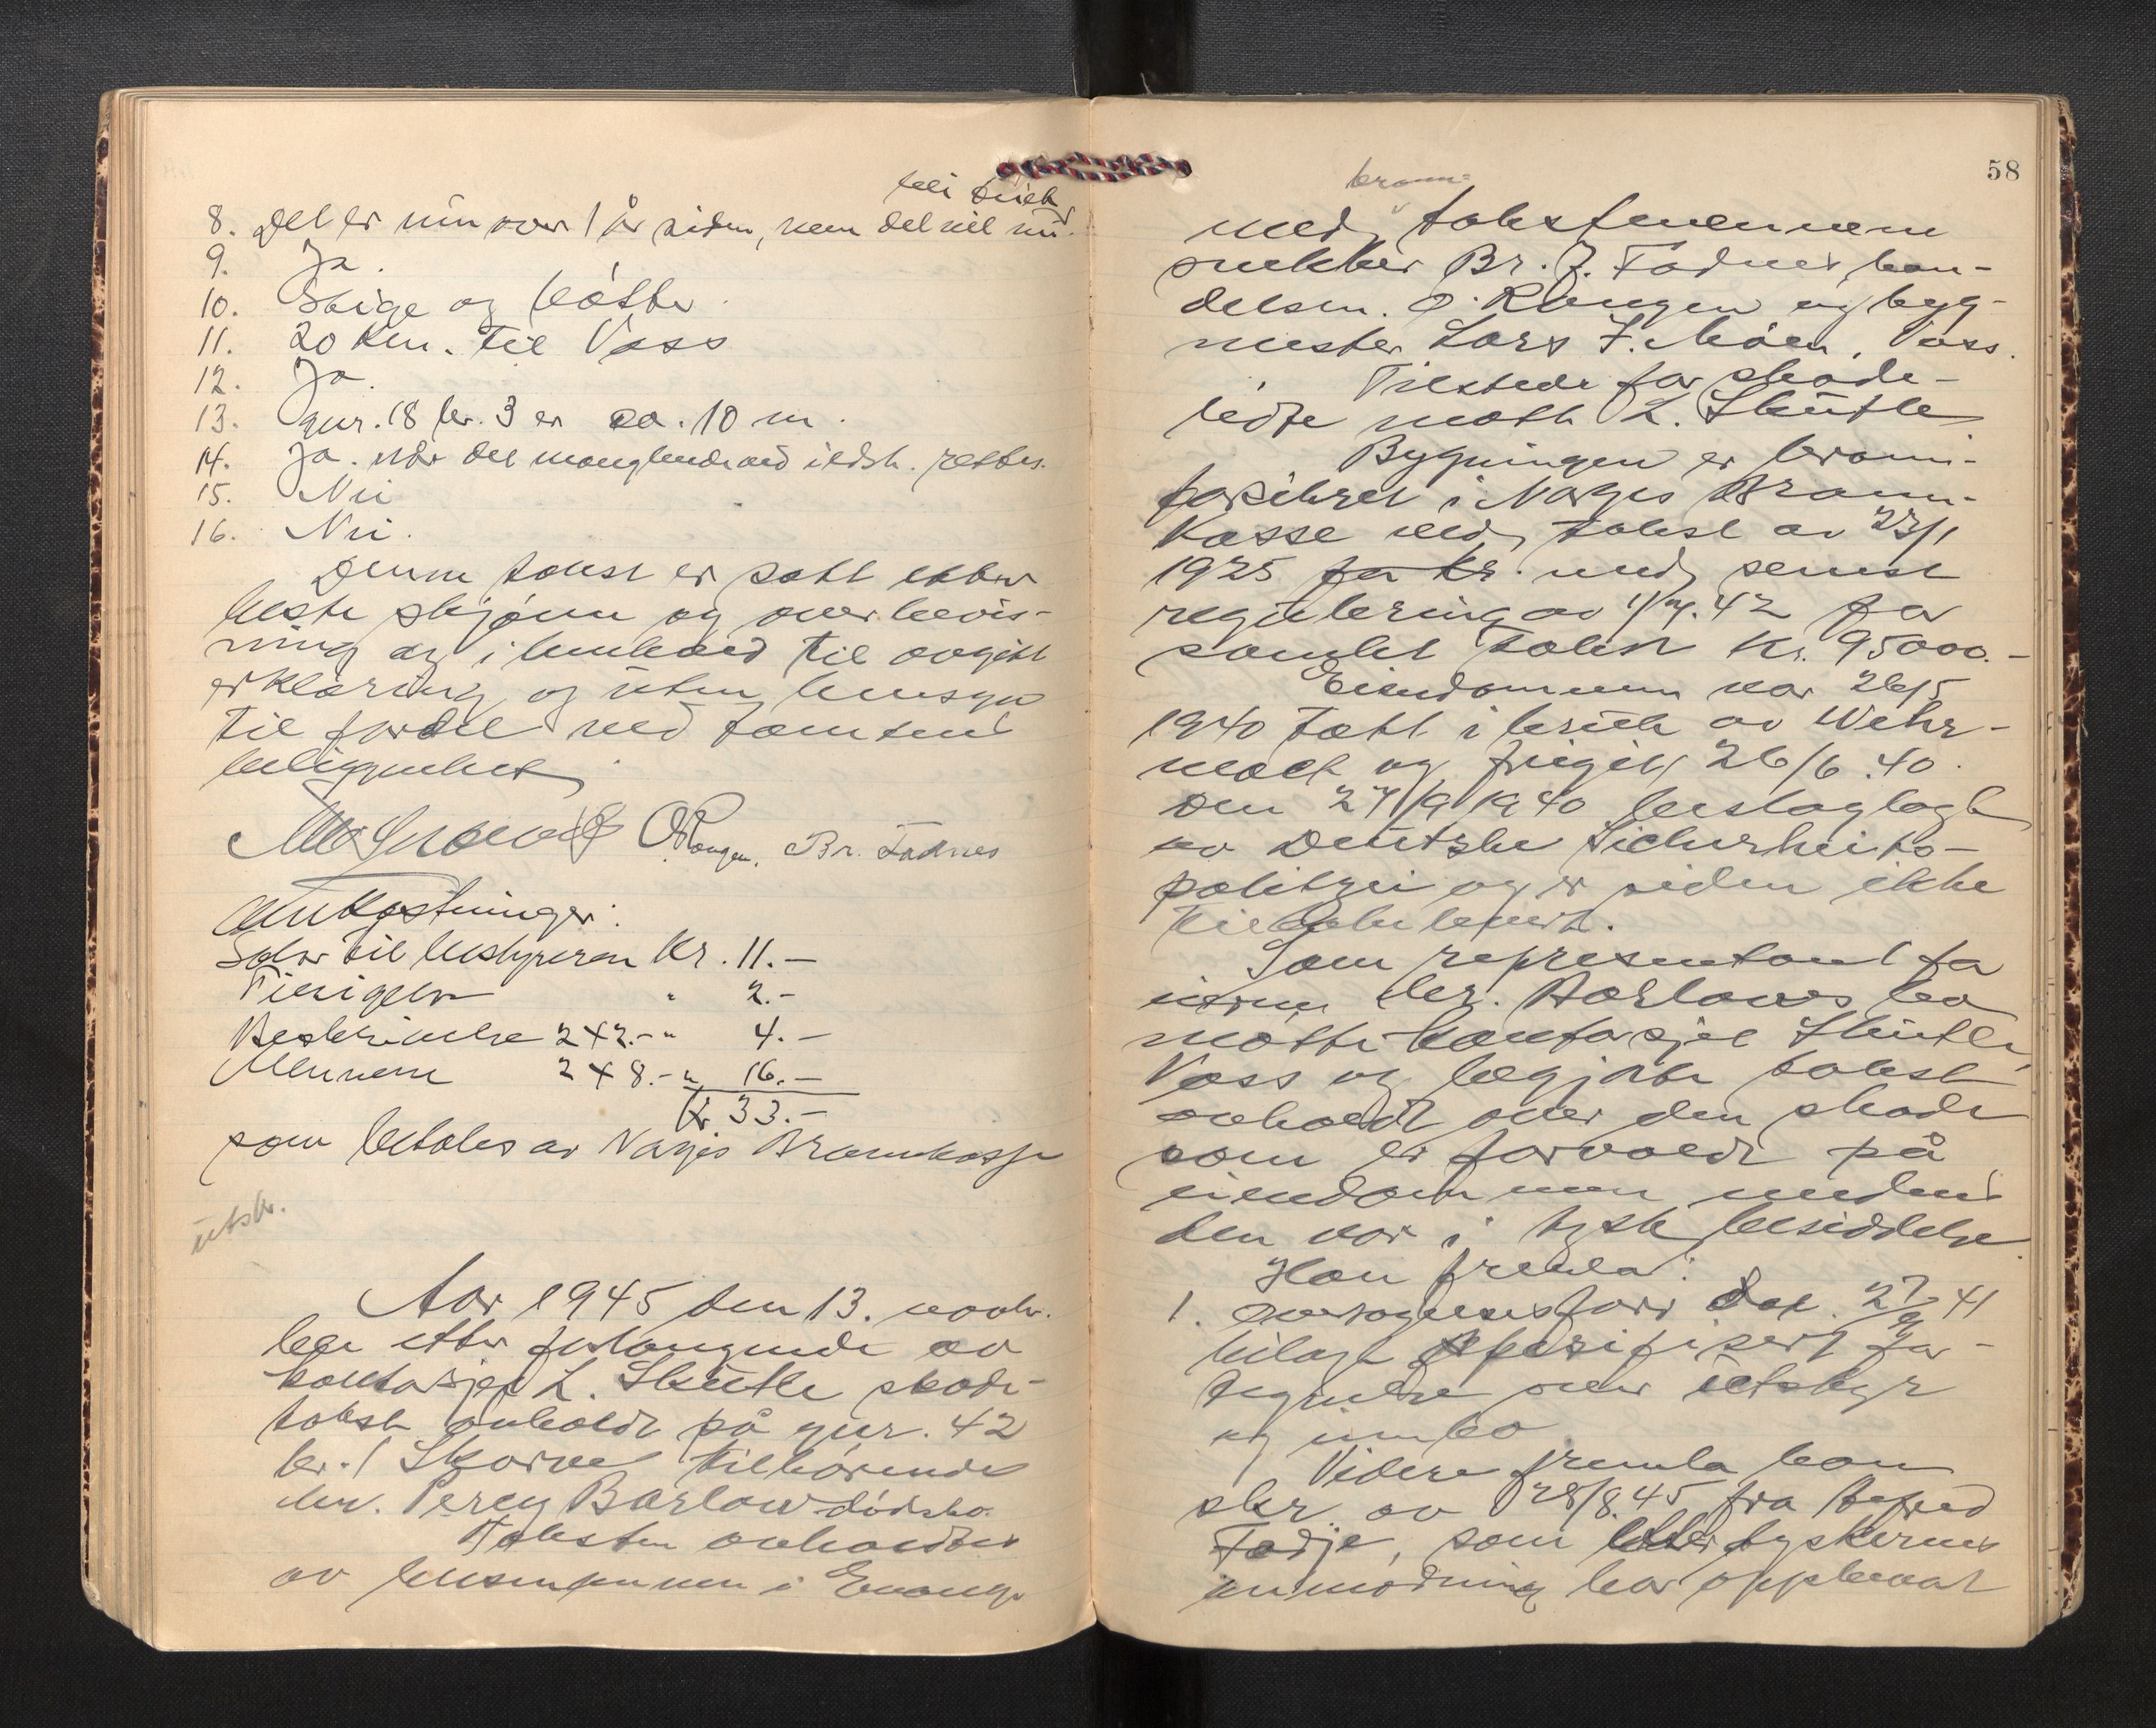 bli brukt
8. Det er nu over 1 år siden, men det vil nu
9. Ja.
10. Stige og bøtte.
11. 20 km. til Voss
12. Ja.
13. gnr. 18 br. 3 er ca. 10 m.
14. Ja. når det manglende ved ildst. rettes.
15. Nei
16. Nei.
Denne takst er satt etter
beste skjønn og overbevis-
ning og i henhold til avgitt
erklæring og uten hensyn
til fordel ved tomtens
beliggenhet.
O Rongen. Br. Fadnes
Omkostninger:
Salær til bestyreren kr. 11.–
Tinglysn " 2.–
Beskrivelse 2×2.– " 4.–
Mennene 2×8.– " 16.–
Kr. 33.–
som betales av Norges Brannkasse
utskr.
Aar 1945 den 13. novbr.
ble etter forlangende av
kontorsjef L. Skutle skade-
takst avholdt på gnr. 42
br. 1 Skorve tilhørende
hr. Percy Barlow dødsbo.
Taksten avholdtes
av lensmannen i Evanger
58
brann-
med takstmennene
snekker Br. J. Fadnes, han-
delsm. O. Rongen og byg-
mester Lars J. Møen, Voss.
Tilstede for skade-
lidte møtte L. Skutle
Bygningen er brann-
forsikret i Norges Brann-
kasse ved takst av 23/1
1925 for kr. med senest
regulering av 1/7.42 for
samlet takst kr. 95000.–
Eiendommen var 26/5
1940 tatt i bruk av Wehr-
macht og frigitt 26/6.40.
Den 27/9 1940 beslaglagt
av Deutsche Sicherheits-
politzei og er siden ikke
tilbakelevert.
Som representant for
hr. Barlows bo
møtte kontorsjef Skutle,
Voss og begjærte takst
avholdt over den skade
som er forvoldt på
eiendommen medens
den var i tysk besiddelse.
Han fremla:
1. dat. 27/9 41
bilagt spesifisert for-
tegnelse over utstyr
og innbo
Videre fremla han
skr. av 28/8.45 fra
Fadje, som etter tyskernes
anmodning har oppbevart